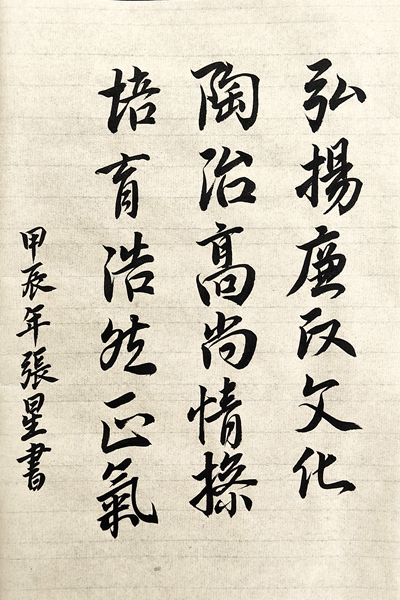 弘揚廉政文化
陶冶高尚情操
培育浩然正氣
甲辰年張星書